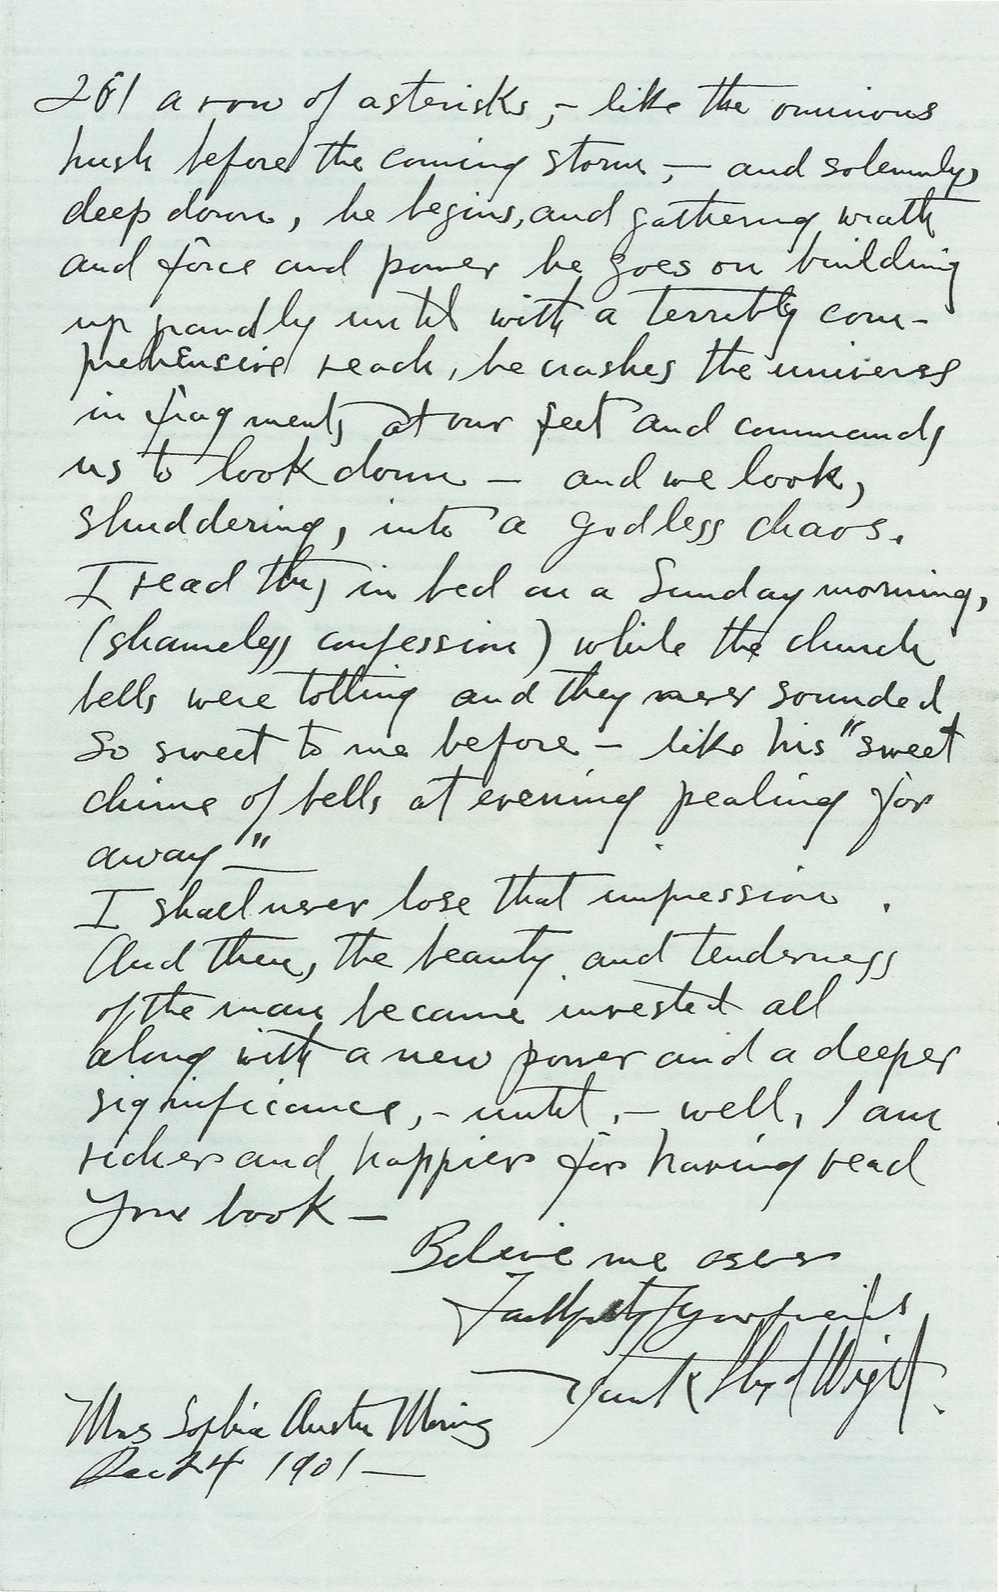 261 a row of asterisks, – like the ominous
hush before the coming storm, – and solemnly,
deep down, he begins, and gathering wrath
and force and power he goes on building
up grandly until with a terribly com-
prehensive reach, he crashes the universe
in fragments at our feet and commands
us to look down – and we look,
shuddering, into a Godless chaos.
I read this in bed on a Sunday morning,
(shameless confession) while the church
bells were tolling and they never sounded
so sweet to me before – like his "sweet
chime of bells at evening pealing far
away" –
I shall never lose that impression.
And then, the beauty and tenderness
of the man became invested all
along with a new power and a deeper
significance, – until, – well, I am
richer and happier for having read
your book –
Believe me as ever
Faithfully your friend
Frank Lloyd Wright.
Mrs Sophia Austin
Dec 24 1901 –